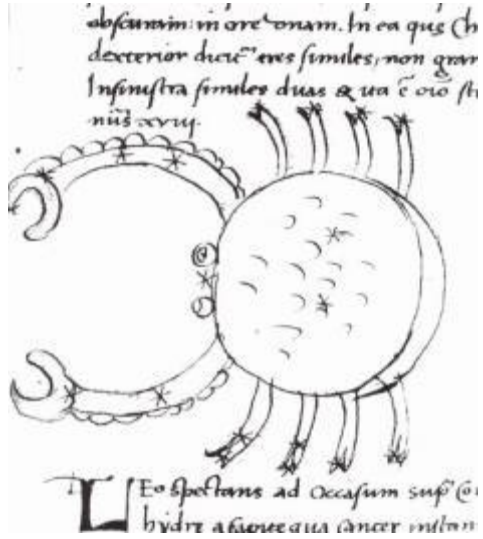 obscuram: in ore unam. In ea quę Ch
dexterior dicit᷑ tres similes, non gran
In sinistra similes duas & ita ē oīo ste
nūs xviij.
LEo spectans ad Occasum sup̄ Co
hydrę a qua Cancer instan